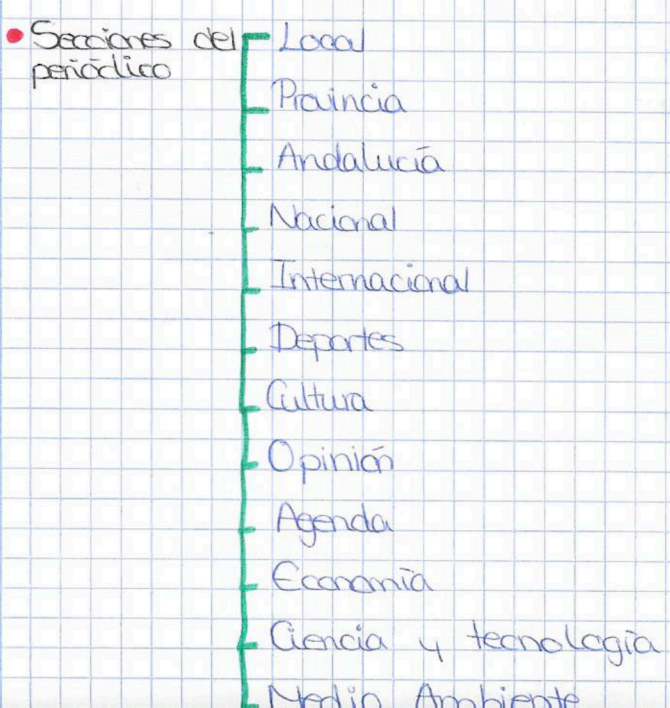 Secciones del
periódico
Local
Provincia
Andalucía
Nacional
Internacional
Deportes
Cultura
Opinión
Agenda
Economía
Ciencia y tecnología
Medio Ambiente